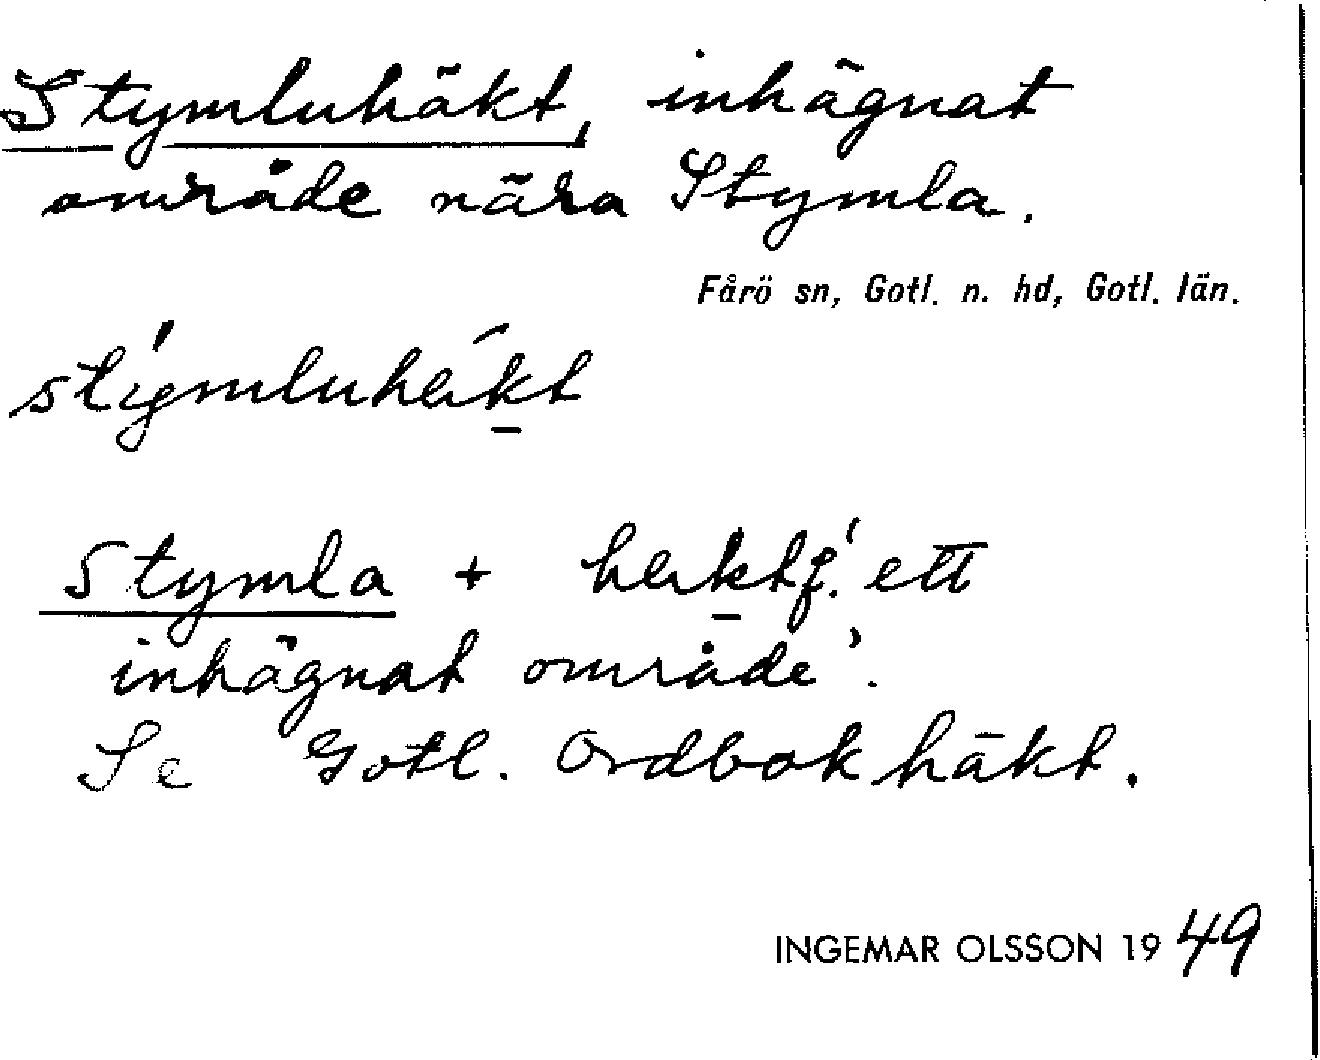 Stymluhäkt, inhägnat
område nära Stymla.
Fårö sn, Gotl. n. hd, Gotl. län.
Stymla + f. 'ett
inhägnat område'.
Se Gotl. Ordbok häkt.
INGEMAR OLSSON 1949